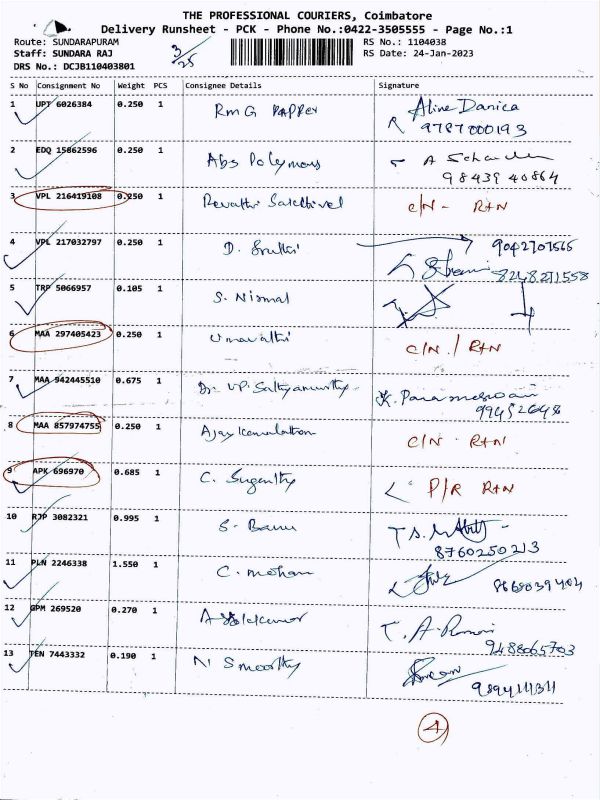 THE PROFESSIONAL COURIERS, Coimbatore
Delivery Runsheet - PCK - Phone No.:0422-3505555 - Page No.:1
Route: SUNDARAPURAM
Staff: SUNDARA RAJ
DRS No.: DCJB110403801
3/25
RS No.: 1104038
RS Date: 24-Jan-2023
S No Consignment No Weight PCS Consignee Details Signature
1 UPT 6026384 0.250 1 RMG Aline Danica
9787000193
2 EDQ 15862596 0.250 1 Abs Polymers A
98439 40864
3 VPL 216419108 0.250 1 Revathi C/N - RTN
4 VPL 217032797 0.250 1 D. Sruthi 9042707565
8248271558
5 TRP 5066957 0.105 1 S. Nirmal
6 MAA 297405423 0.250 1 Umavathi C/N / RTN
7 MAA 942445510 0.675 1 Dr. VP. Sathyamurthy K. Parameswari
8 MAA 857974755 0.250 1 C/N - RTN
9 APK 696970 0.685 1 C. Suganthy P/R RTN
10 RJP 3082321 0.995 1 S. Banu
8760250213
11 PLN 2246338 1.550 1 C. Mohan
12 GPM 269520 0.270 1 T. A. Ramani
9488065703
13 TEN 7443332 0.190 1 N S Moorthy
4